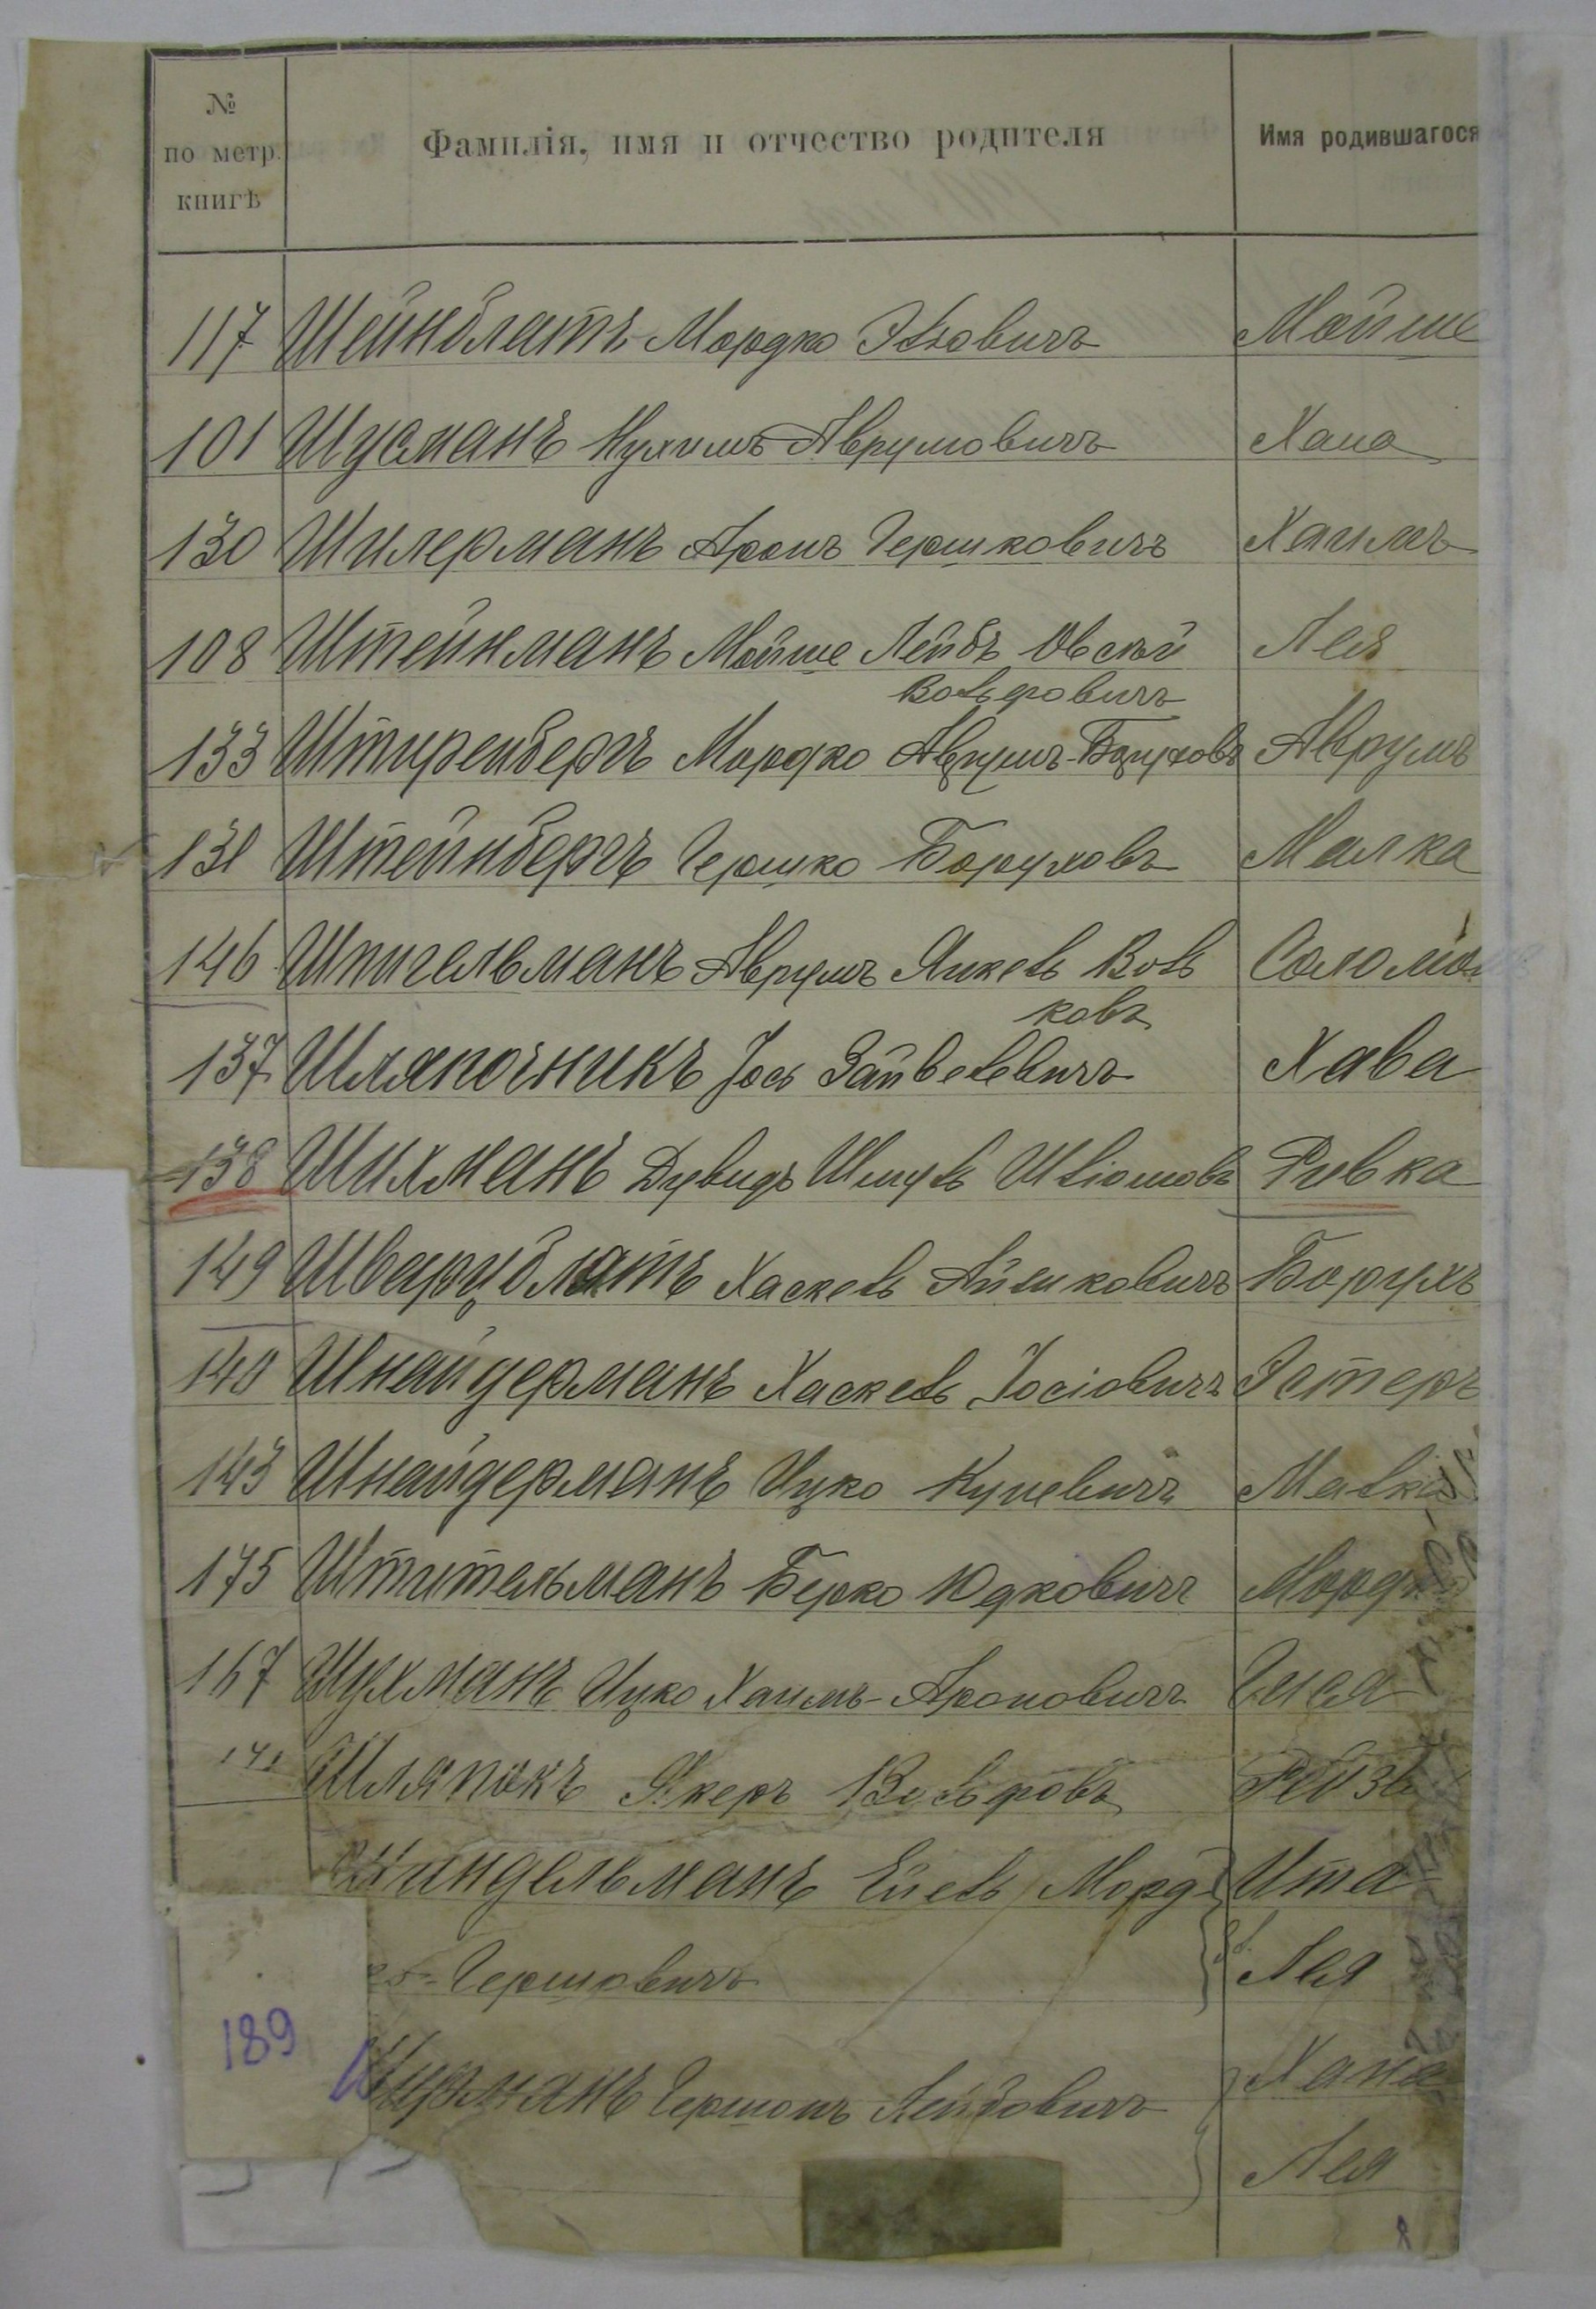 № по метр. книгѣ Фамилія, имя и отчество родителя Имя родившагося
117 Шейнблатъ Мордко Эльовичъ Мойше
101 Шусманъ Нухимъ Аврумовичъ Хана
130 Шилерманъ Аронъ Гершковичъ Хаимъ
108 Штейнманъ Мойше Лейбъ Овсѣй Лея
Вольфовичъ
133 Штиренбергъ Мордко Аврумъ-Боруховъ Аврумъ
131 Штейнбергъ Гершко Боруховъ Малка
146 Шпигельманъ Аврумъ Янкель Воль Соломон
ковъ
137 Шляпочникъ Іось Зайвелевичъ Хава
138 Шихманъ Дувидъ Шмуль Шліомовъ Ривка
149 Шварцблатъ Хаскель Айзиковичъ Борухъ
140 Шнайдерманъ Хаскель Іосіовичъ Эстеръ
143 Шнайдерманъ Ицко Куневичъ Малка
175 Штительманъ Берко Юдковичъ Мордко
167 Шухманъ Ицко Хаимъ-Ароновичъ Гися
141 Шляпакъ Якеръ Вольфовъ Рейзя
Шиндельманъ Ейель Морд- Ита
ко-Гершовичъ Лея
189 Шурманъ Гершонъ Лейбовичъ Хана
Лея